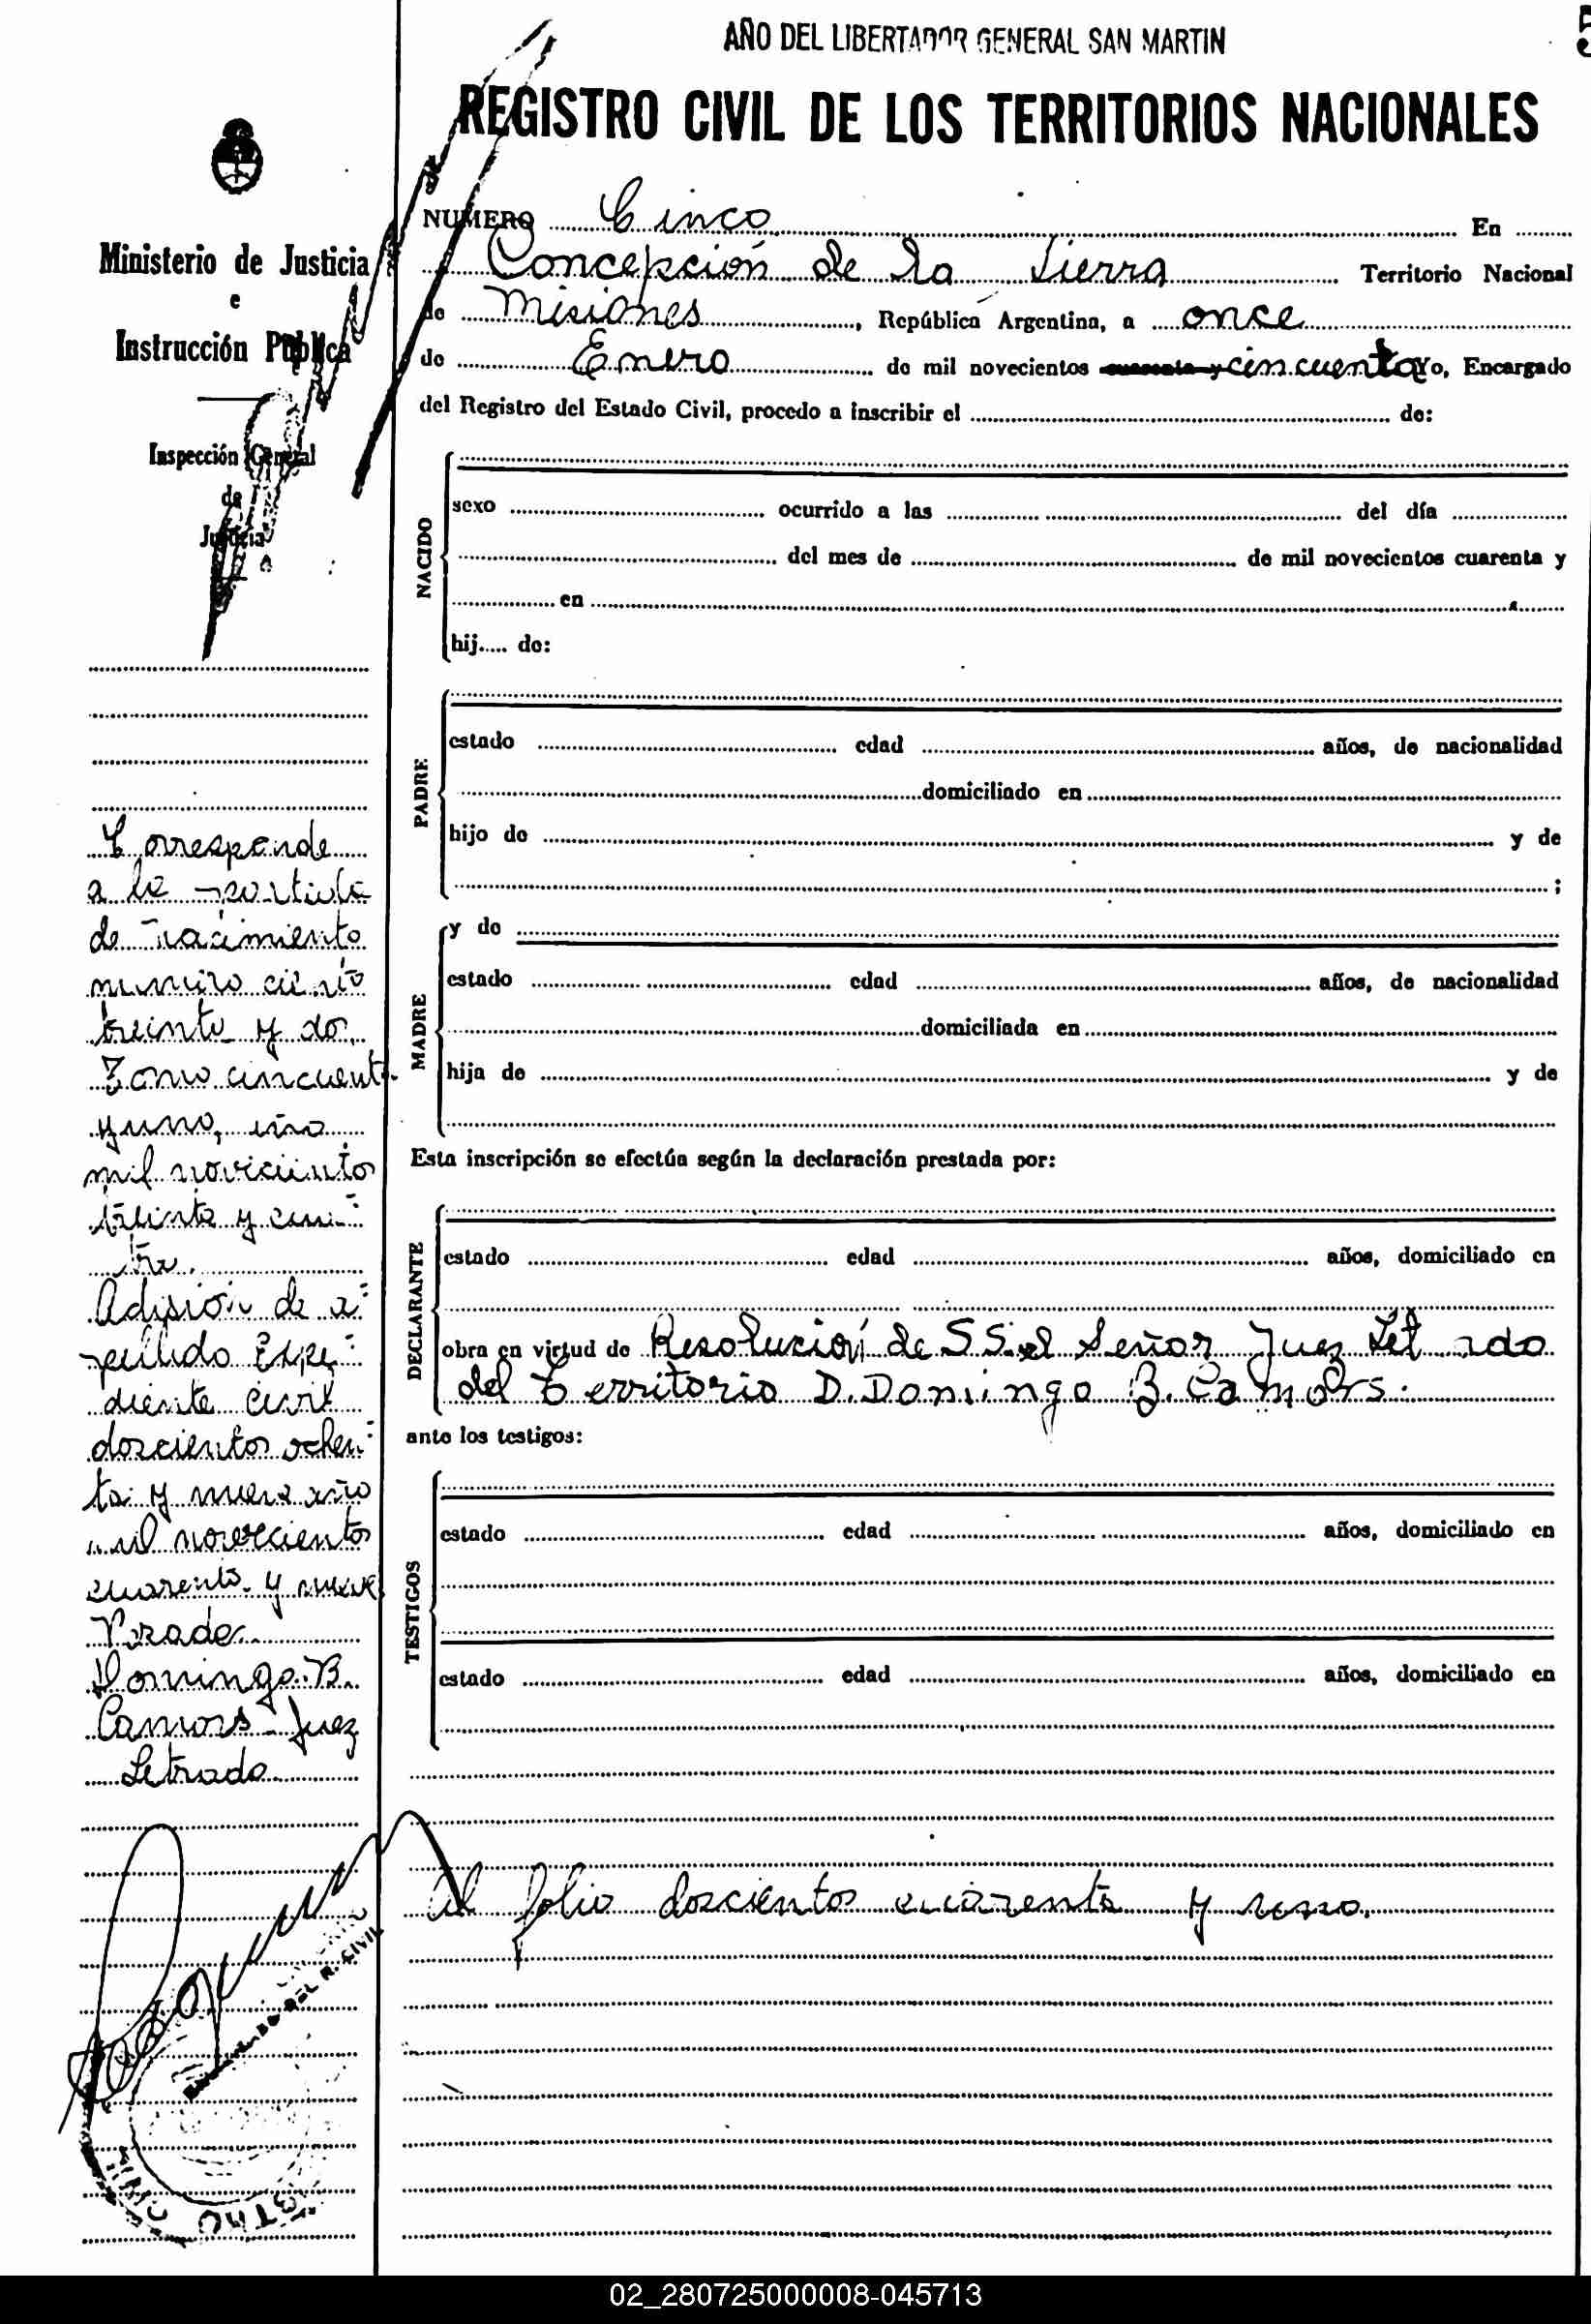 AÑO DEL LIBERTADOR GENERAL SAN MARTIN
5
REGISTRO CIVIL DE LOS TERRITORIOS NACIONALES
Ministerio de Justicia
e
Instrucción Pública
Inspección General
de
Justicia
NUMERO Cinco En
Concepción de la Sierra Territorio Nacional
de Misiones, República Argentina, a once
de Enero de mil novecientos cuarenta y cincuenta Yo, Encargado
del Registro del Estado Civil, procedo a inscribir el de:
NACIDO
sexo ocurrido a las del día
del mes de de mil novecientos cuarenta y
en
hij..... de:
PADRE
estado edad años, de nacionalidad
domiciliado en
hijo de y de
;
MADRE
y de
estado edad años, de nacionalidad
domiciliada en
hija de y de
Esta inscripción se efectúa según la declaración prestada por:
DECLARANTE
estado edad años, domiciliado en
obra en virtud de Resolución de S S el Señor Juez Let ado
del Territorio D. Domingo B. Camors.
ante los testigos:
TESTIGOS
estado edad años, domiciliado en
estado edad años, domiciliado en
al folio doscientos cuarenta y
Corresponde
a la partida
de nacimiento
numero ciento
treinta y dos
Tomo cincuenta
y uno, año
mil novecientos
treinta y cua-
tro.
Adisión de a-
pellido Expe-
diente Civil
doscientos ochen-
ta y nueve año
mil novecientos
cuarenta y nueve
Posadas.
Domingo B.
Camors Juez
Letrado
ENCARGADO DEL R. CIVIL
02_280725000008-045713